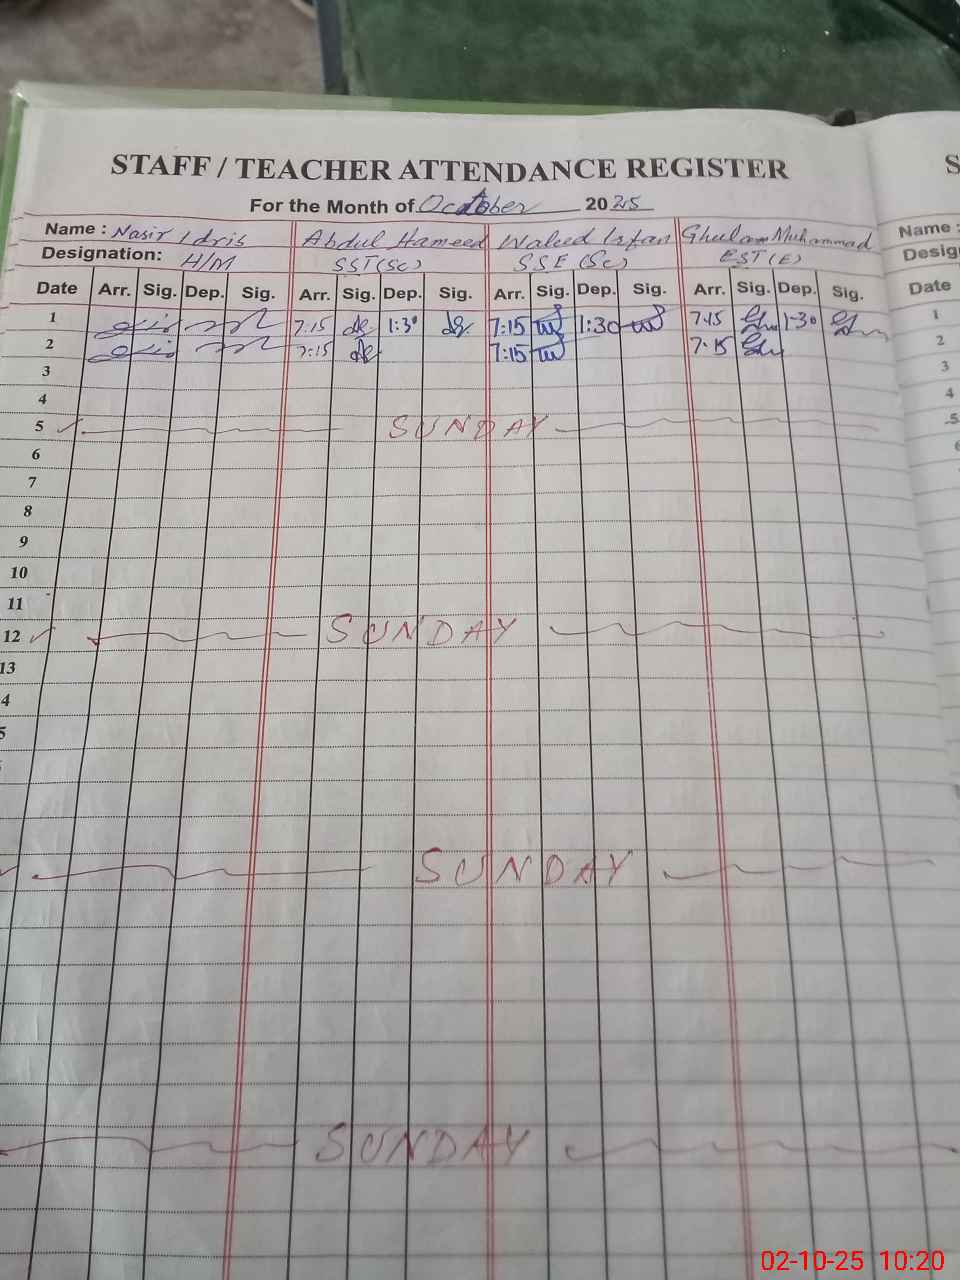 STAFF / TEACHER ATTENDANCE REGISTER
S
For the Month of October 2025
Name : Nasir Idris Abdul Hameed Waleed Irfan Ghulam Muhammad Name :
Designation: H/M SST(Sc) SSE (Sc) EST(E)
Date Arr. Sig. Dep. Sig. Arr. Sig. Dep. Sig. Arr. Sig. Dep. Sig. Arr. Sig. Dep. Sig. Date
1 7:15 1:30 7:15 1:30 7:15 1-30 1
2 7:15 7:15 7:15 2
3 3
4 4
5 SUNDAY 5
6
7
8
9
10
11
12 SUNDAY
13
4
5
SUNDAY
SUNDAY
02-10-25 10:20